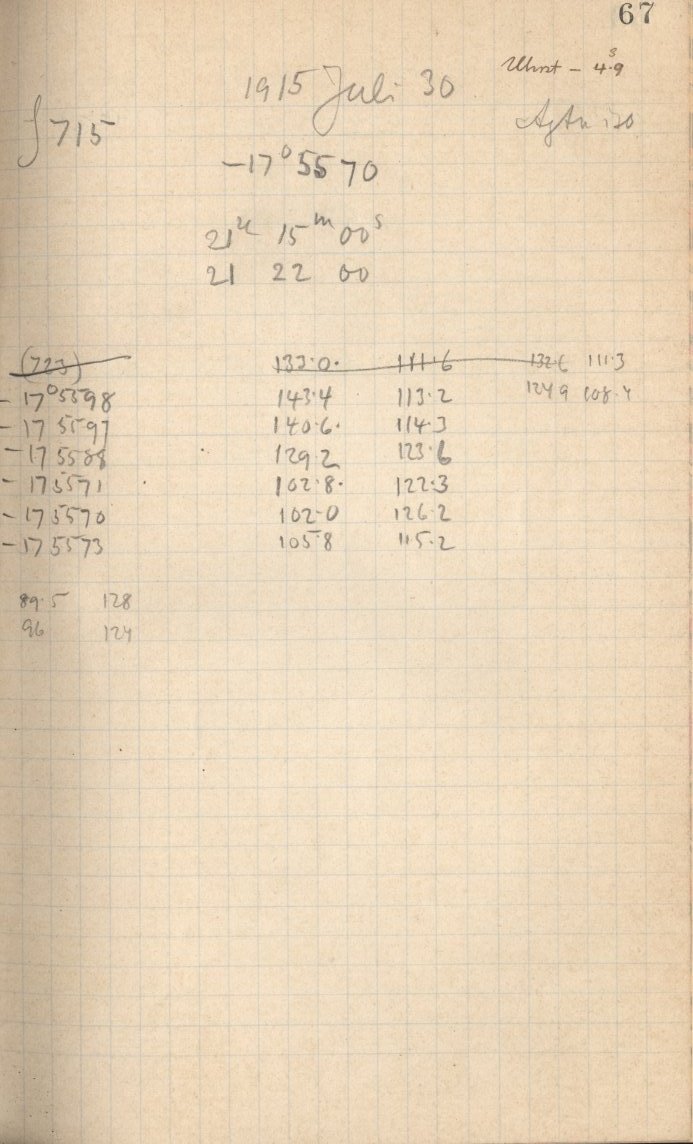 67
Uhrst - 4ˢ.9
1915 Juli 30
∫715
-17°5570
21ᵘ 15ᵐ 00ˢ
21 22 00
(723) 133.0. 111.6 132.6 111.3
-17°5598 143.4 113.2 124.9 108.4
-17 5597 140.6. 114.3
-17 5588 129.2 123.6
-17 5571 102.8. 122.3
-17 5570 102.0 126.2
-17 5573 105.8 115.2
89.5 128
96 124